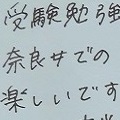 受験勉強
奈良での
楽しいです